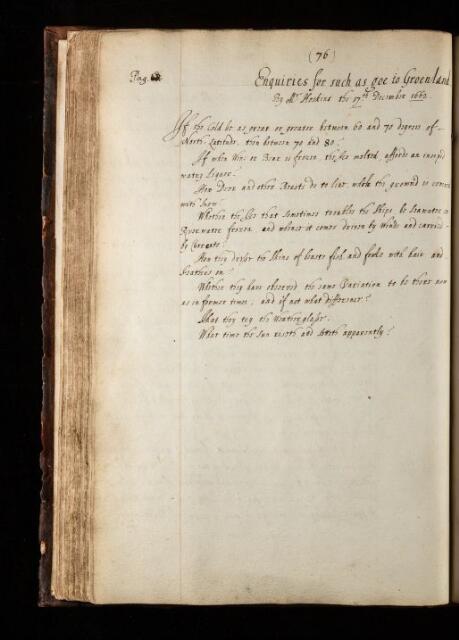 (76)
Pag.
Enquiries for such as goe to Groenland
By Mr Hoskins the 17th December 1662.
If the Cold be as great or greater between 60 and 70 degrees of
North Latitude, then between 70 and 80?
If when Wine or Bear is frozen, the Ice melted, affords an insipid
watry Liquor?
How Deer and other Beasts do to live, while the ground is covered
with Snow?
Whether the Ice that sometimes troubles the Ships be Seawater or
River water frozen, and whence it comes driven by Winds and carried
by Currants?
How they dresse the Skins of beasts fish and fowls with hair and
feathers on?
Whether they have observed the same Variation to be there now
as in former times; and if not what difference?
What they say the Weather glasse.
What time the Sun riseth and setteth apparently?